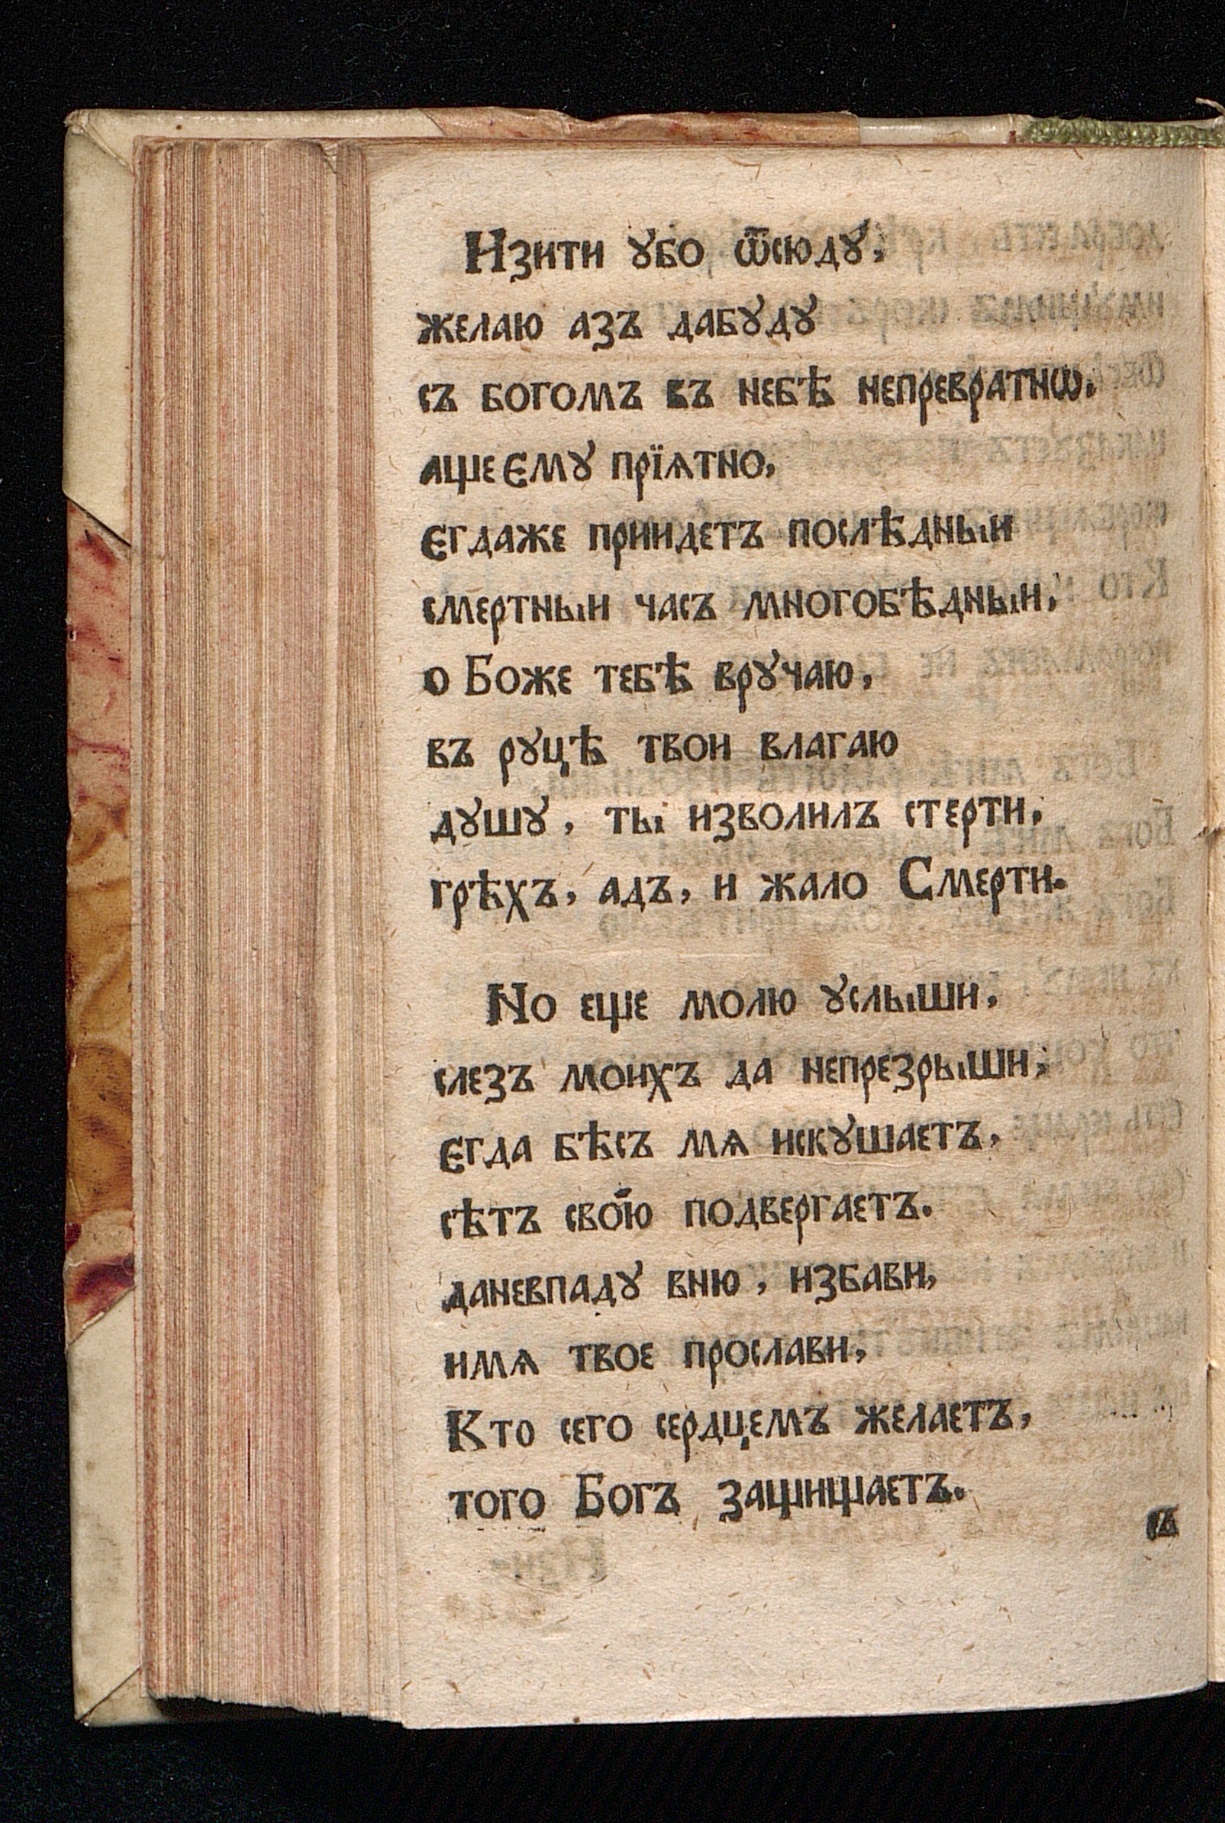 Изити ꙋбо ѿсюдꙋ,
желаю азъ дабꙋдꙋ
съ богомъ въ небѣ непревратнѡ.
аще Ємꙋ прїѧтно,
Єгдаже приидетъ послѣдный
смертный часъ многобѣдный,
о Боже тебѣ врꙋчаю,
въ рꙋцѣ твои влагаю
дꙋшꙋ, ты изволилъ стерти,
грѣхъ, адъ, и жало Смерти.
Но еще молю ꙋслыши,
слезъ моихъ да непрезрыши,
Єгда бѣсъ мѧ искꙋшаетъ,
сѣтъ свою подвергаетъ.
даневпадꙋ вню, избави,
имѧ твое прослави,
Кто сего сердцемъ желаетъ,
того Богъ защищаетъ.
съ